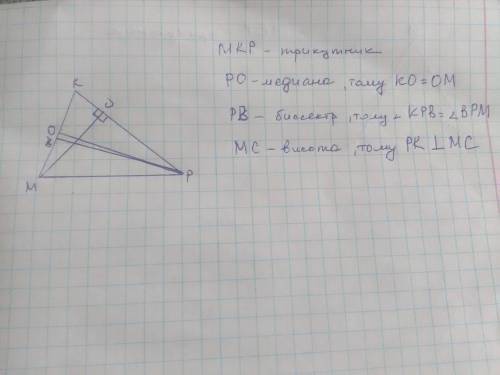 MKP - трикутник
PO - медиана, тому KO = OM
PB - биссектр, тому ∠ KPB = ∠BPM
MC - висота, тому PK ⊥ MC
K
C
O
B
M
P